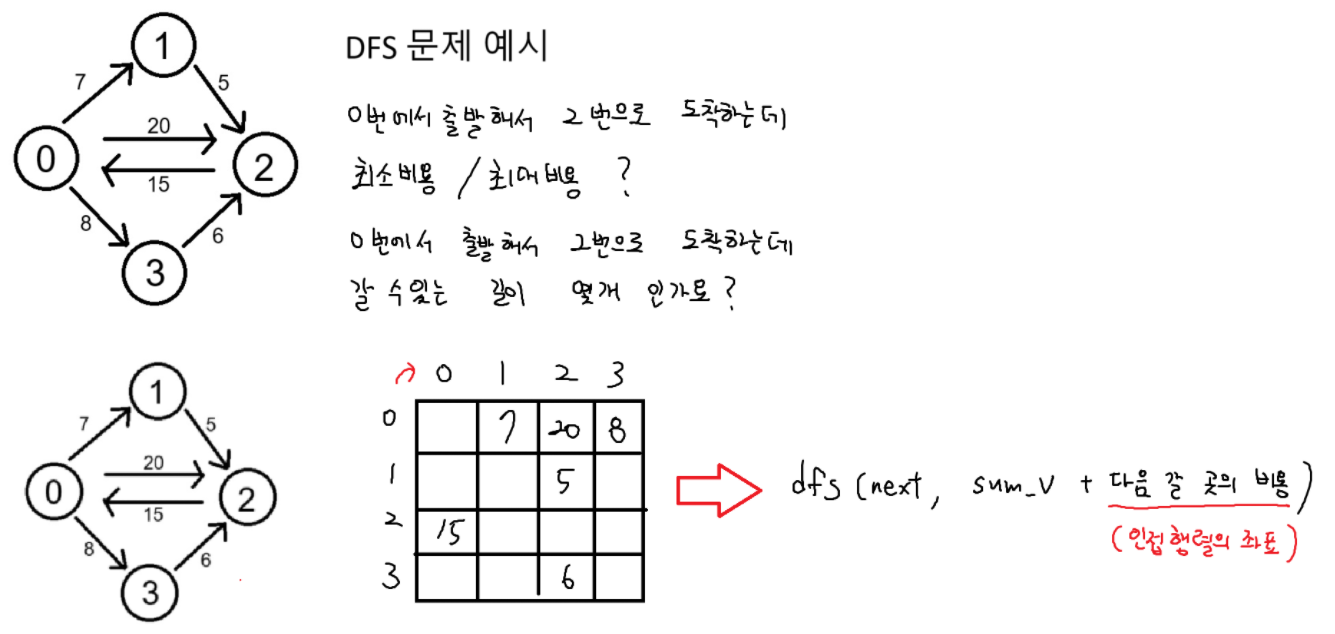 DFS 문제 예시
0번에서 출발해서 2번으로 도착하는데
최소비용 / 최대비용 ?
0번에서 출발해서 2번으로 도착하는데
갈 수 있는 길이 몇개 인가요?
1
7
5
20
0
2
15
8
6
3
1
7
5
20
0
2
15
8
6
3
0 1 2 3
0 7 20 8
1 5
2 15
3 6
dfs (next, sum_v + 다음 갈 곳의 비용)
(인접행렬의 좌표)